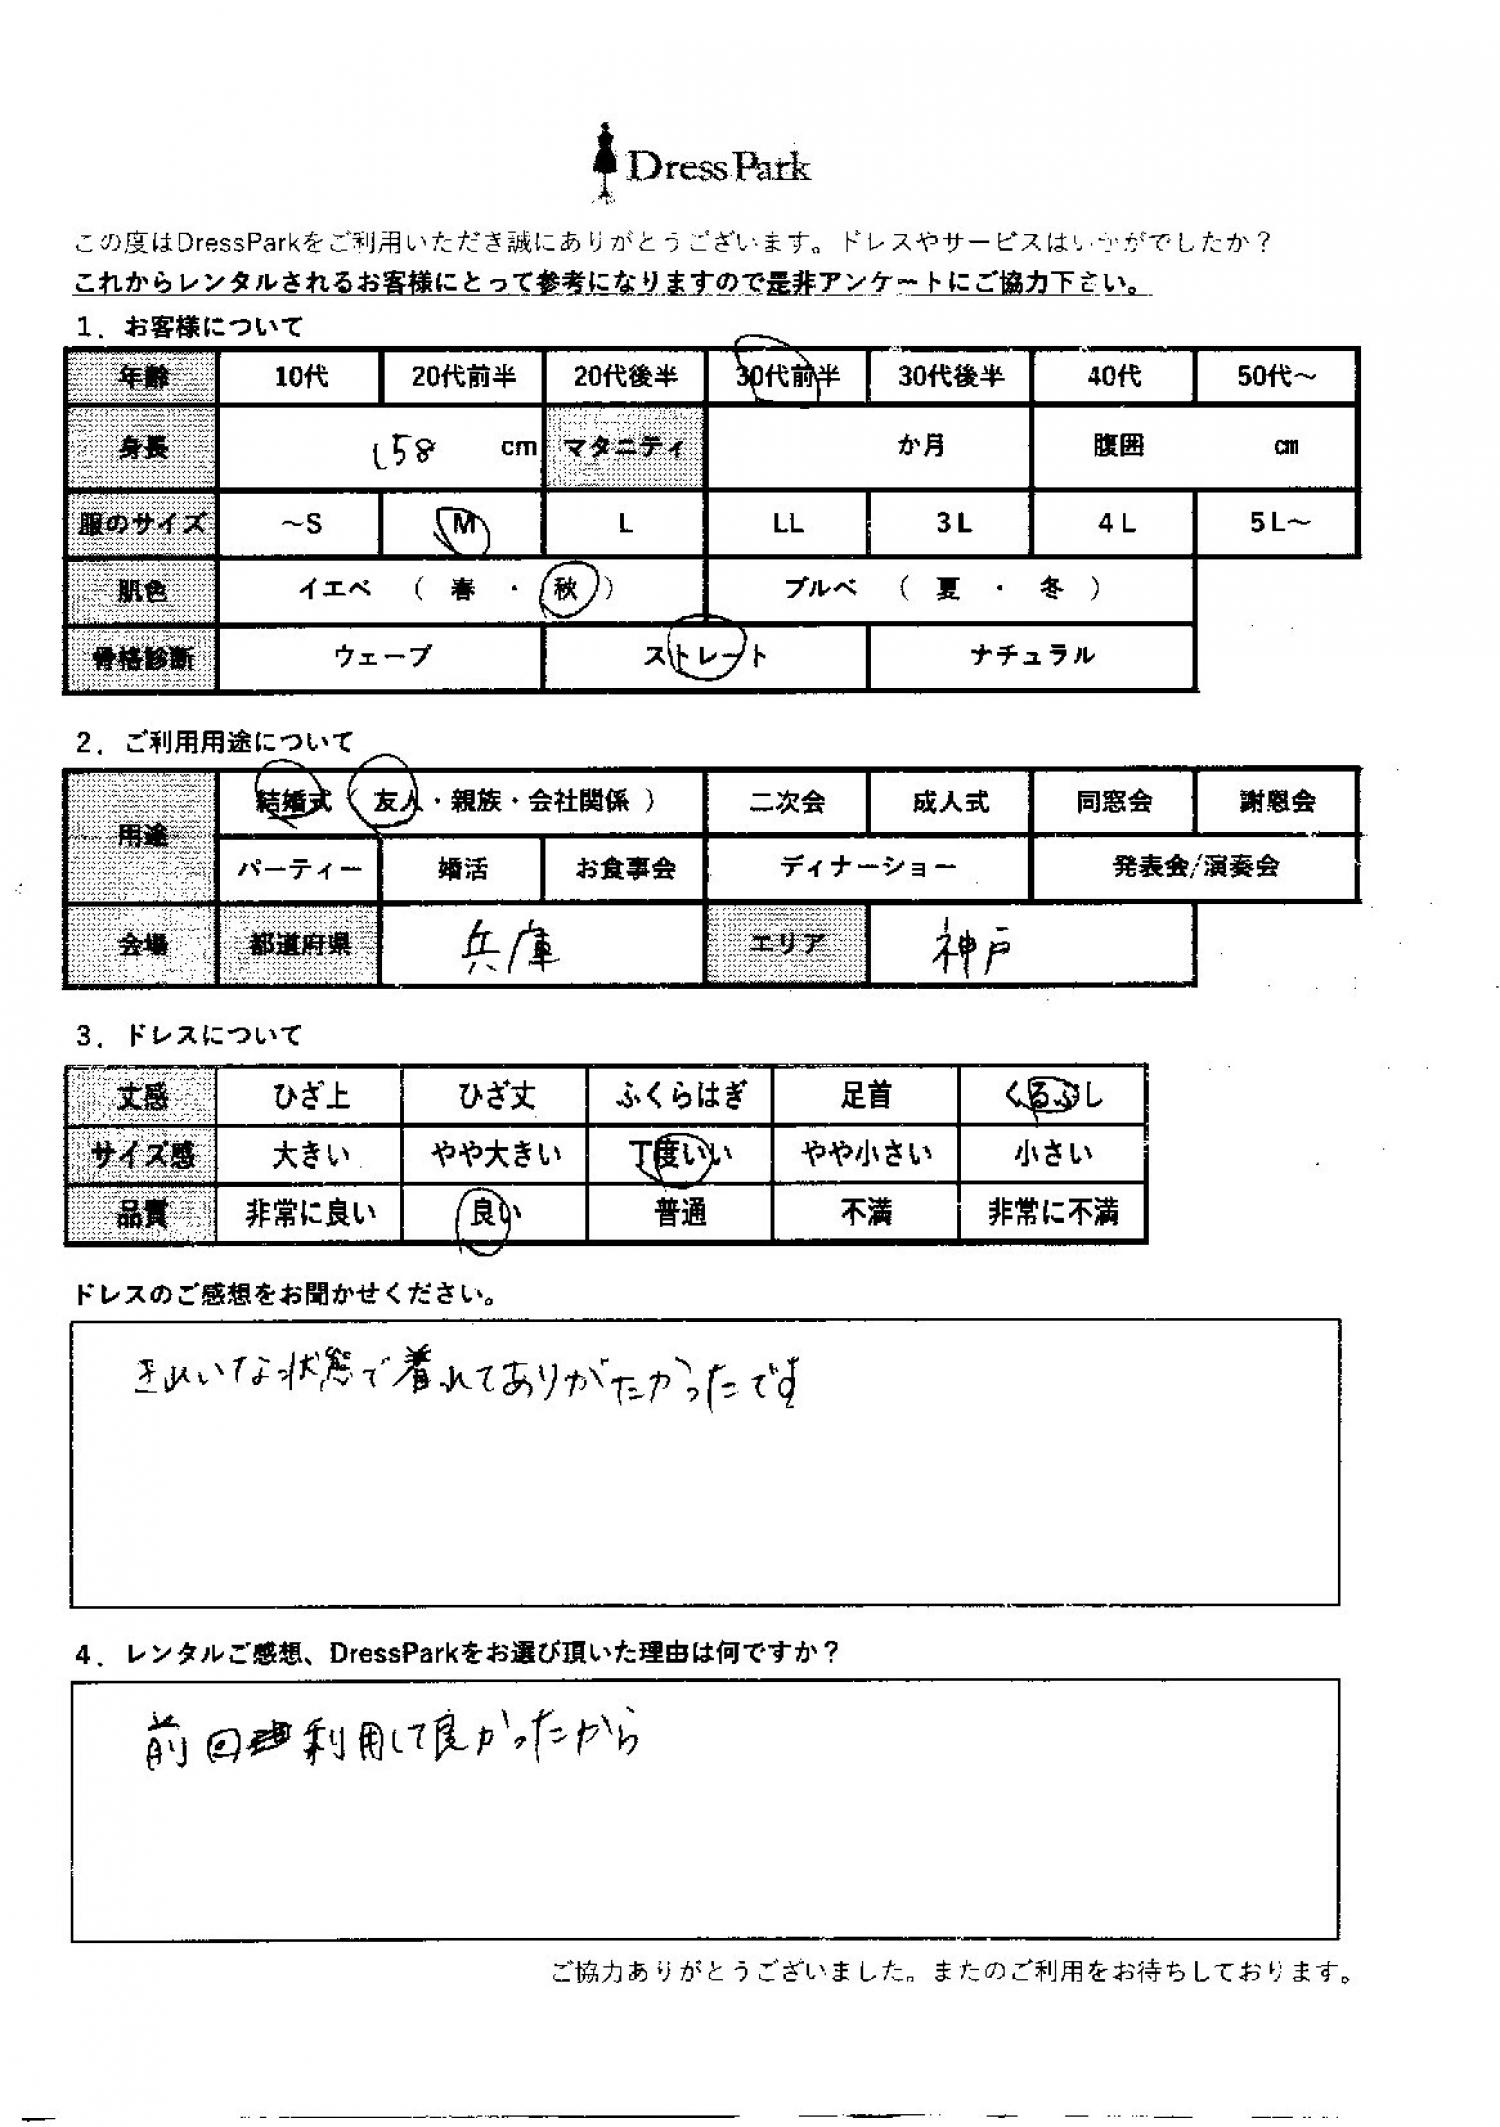 DressPark
この度はDressParkをご利用いただき誠にありがとうございます。ドレスやサービスはいかがでしたか？
これからレンタルされるお客様にとって参考になりますので是非アンケートにご協力下さい。
1．お客様について
年齢 10代 20代前半 20代後半 30代前半 30代後半 40代 50代～
身長 158 cm マタニティ か月 腹囲 cm
服のサイズ ～S M L LL 3L 4L 5L～
肌色 イエベ （ 春 ・ 秋 ） ブルベ （ 夏 ・ 冬 ）
骨格診断 ウェーブ ストレート ナチュラル
2．ご利用用途について
用途 結婚式（ 友人・親族・会社関係 ） 二次会 成人式 同窓会 謝恩会
パーティー 婚活 お食事会 ディナーショー 発表会/演奏会
会場 都道府県 兵庫 エリア 神戸
3．ドレスについて
丈感 ひざ上 ひざ丈 ふくらはぎ 足首 くるぶし
サイズ感 大きい やや大きい 丁度いい やや小さい 小さい
品質 非常に良い 良い 普通 不満 非常に不満
ドレスのご感想をお聞かせください。
きれいな状態で着れてありがたかったです
4．レンタルご感想、DressParkをお選び頂いた理由は何ですか？
前回利用して良かったから
ご協力ありがとうございました。またのご利用をお待ちしております。